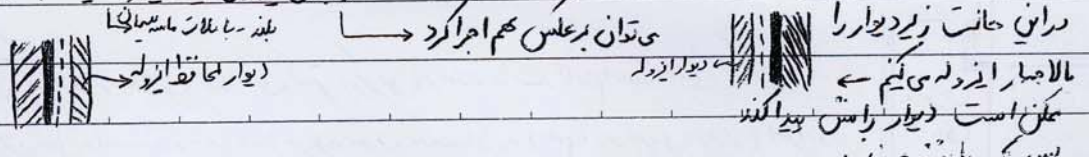 در این حالت زیر دیوار را
بالاجبار ایزوله می کنیم ←
ممکن است دیوار رانش پیدا کند
دیوار ایزوله
می توان برعکس هم اجرا کرد
بلند - با ملات ماسه سیمانی
دیوار محافظ ایزوله